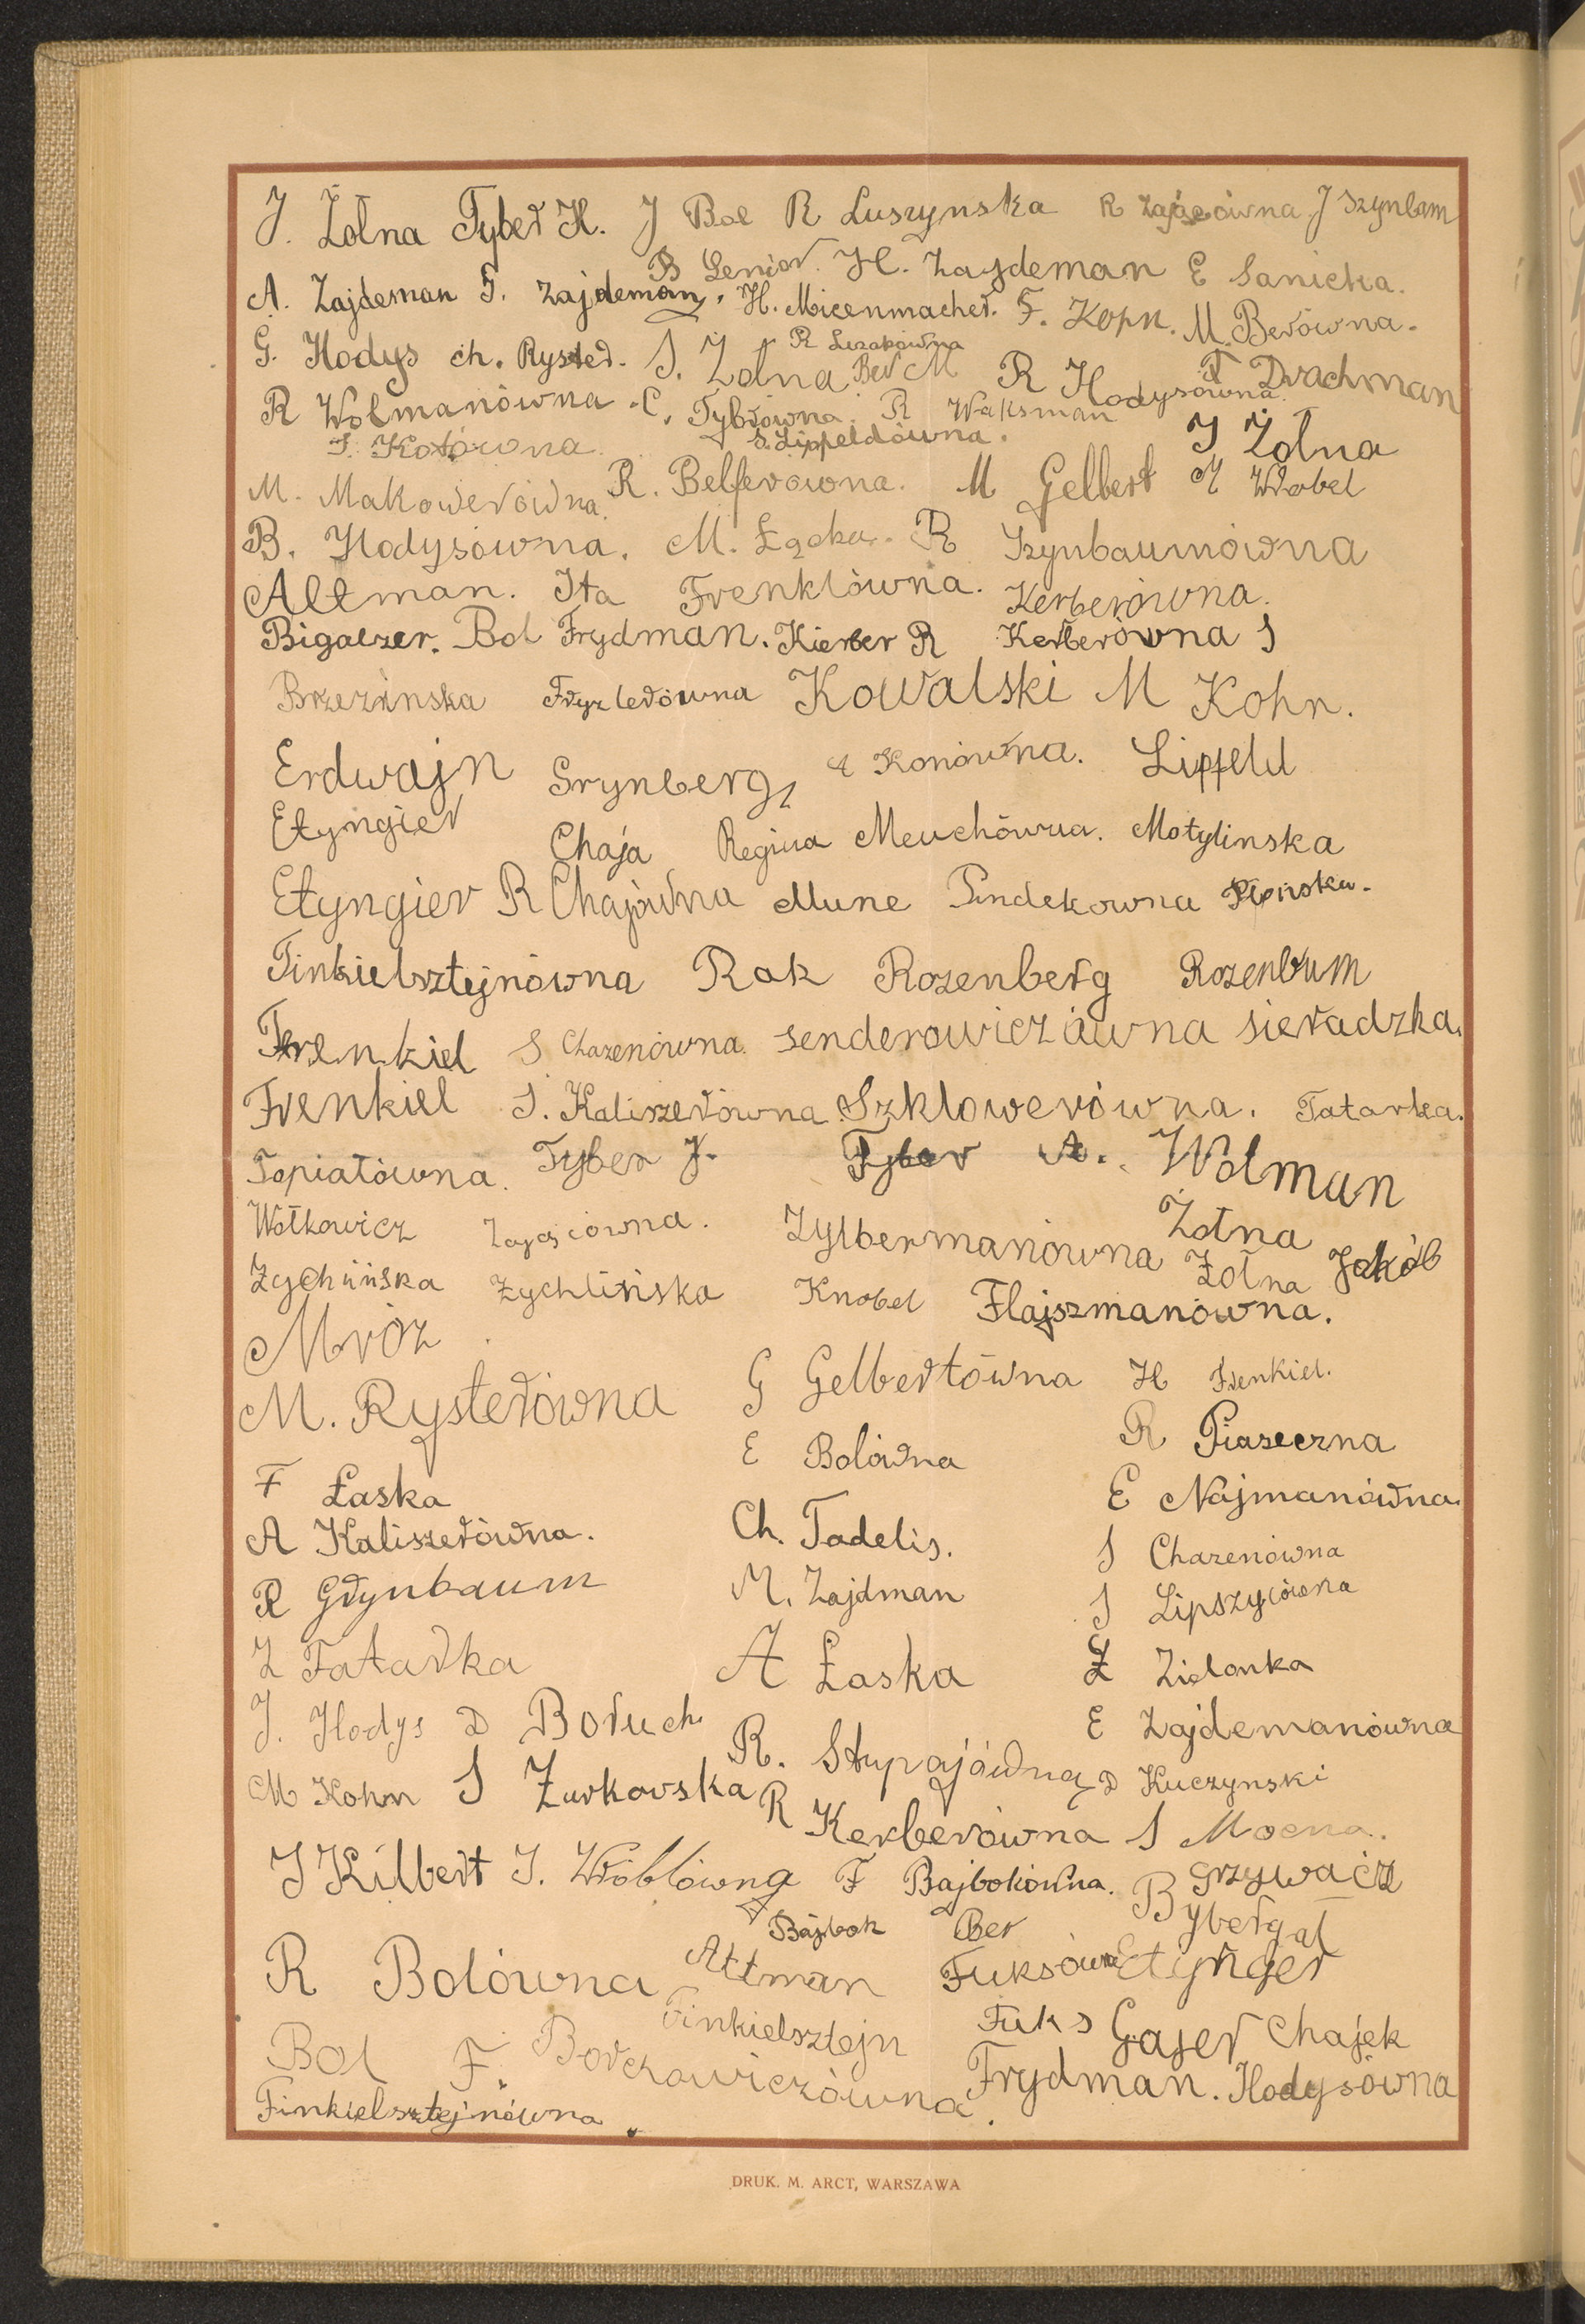 J. Żołna Tyber H. J Bol R Luszynska R Zającówna J Szynbam
B Lenior. H. Zajdeman E Sanicka.
A. Zajdeman F. Zajdeman, H. Micenmacher. F. Kopn. M. Berówna.
G. Hodys Ch. Ryster. S. Żołna R Lizakówna Ber M R Hodysówna F Drachman
R Wolmanówna C. Tybrówna. R Waksman
S. Kotówna S. Lippeldówna. J Żołna
M. Makowerówna. R. Belferówna. M Gelbert M Wrobel
B. Hodysówna. M. Łącka. R Szynbaumówna
Altman. Ita Frenklówna. Kerberówna.
Bigalzer. Bol Frydman. Kierber R Kerberówna S
Brzezinska Fryzlerówna Kowalski M Kohn.
Erdwajn Grynberg, A Konówna. Lippeld
Etyngier Chaja Regina Meuchówna. Motylinska
Etyngier R Chajówna Mune Pindekowna Płońska.
Finkielsztejnówna Rak Rozenberg Rozenbum
Frenkiel S Chazenówna. Senderowiczówna Sieradzka.
Frenkiel S. Kaliszerówna. Szklowerówna. Tatarka.
Topiatówna. Tyber J. Tyber A. Wolman
Wołkowicz Zającówna. Zylbermanówna Żołna
Żychińska Żychlińska Knobel Żołna Jakób
Mróz Flajszmanówna.
M. Rysterówna G Gelbertówna H Frenkiel.
E Bolówna R Piaseczna
F Łaska E Najmanówna.
A Kaliszerówna. Ch. Tadelis. S Chazenówna
R Grynbaum M. Zajdman S Lipszycówna
Z Tatarka A Łaska Z Zielonka
J. Hodys D Boruch E Zajdemanówna
M Kohn S Żurkowska R. Stupajówna D Kuczynski
R Kerberówna S Mocna.
J Kilbert J. Wróblówna F Bajbokówna. B Grzywacz
Bajbok Ber Bybergal
R Bolówna Altman Fuksówna Etynger
Finkielsztejn Fuks Gajer Chajek
Bol F. Borchowiczówna. Frydman. Hodysówna
Finkielsztejnówna
DRUK. M. ARCT, WARSZAWA